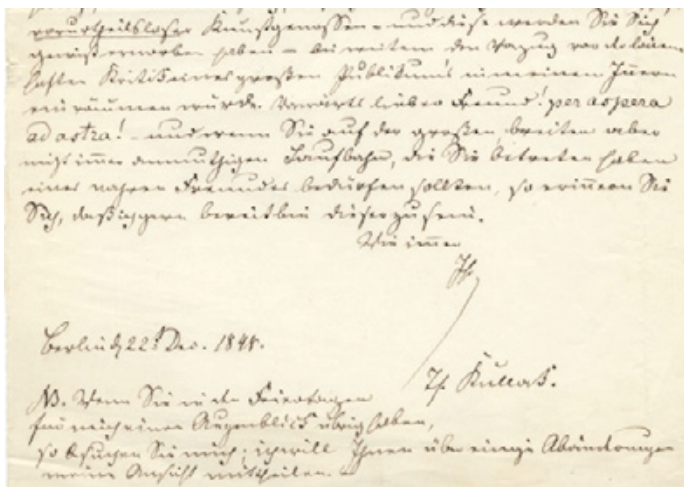 vorurtheilsloser Kunstgenossen – und diese werden Sie Sich
gewiß erworben haben – bei weitem den Vorzug vor der
haften Kritik eines großen Publikum's in meinem Innern
einräumen würde. Vorwärts lieber Freund! per aspera
ad astra! – und wenn Sie auf der großen, breiten aber
nicht immer anmuthigen Laufbahn, die Sie betreten haben
eines wahren Freundes bedürfen sollten, so erinnern Sie
Sich, daß ich gern bereit bin dieser zu sein.
Wie immer
Ihr
Berlin d. 22t Dec. 1848.
Th. Kullak.
NB. Wenn Sie in den Feiertagen
für mich einen Augenblick übrig haben,
so besuchen Sie mich; ich will Ihnen über einige Abänderungen
meine Ansicht mittheilen. –